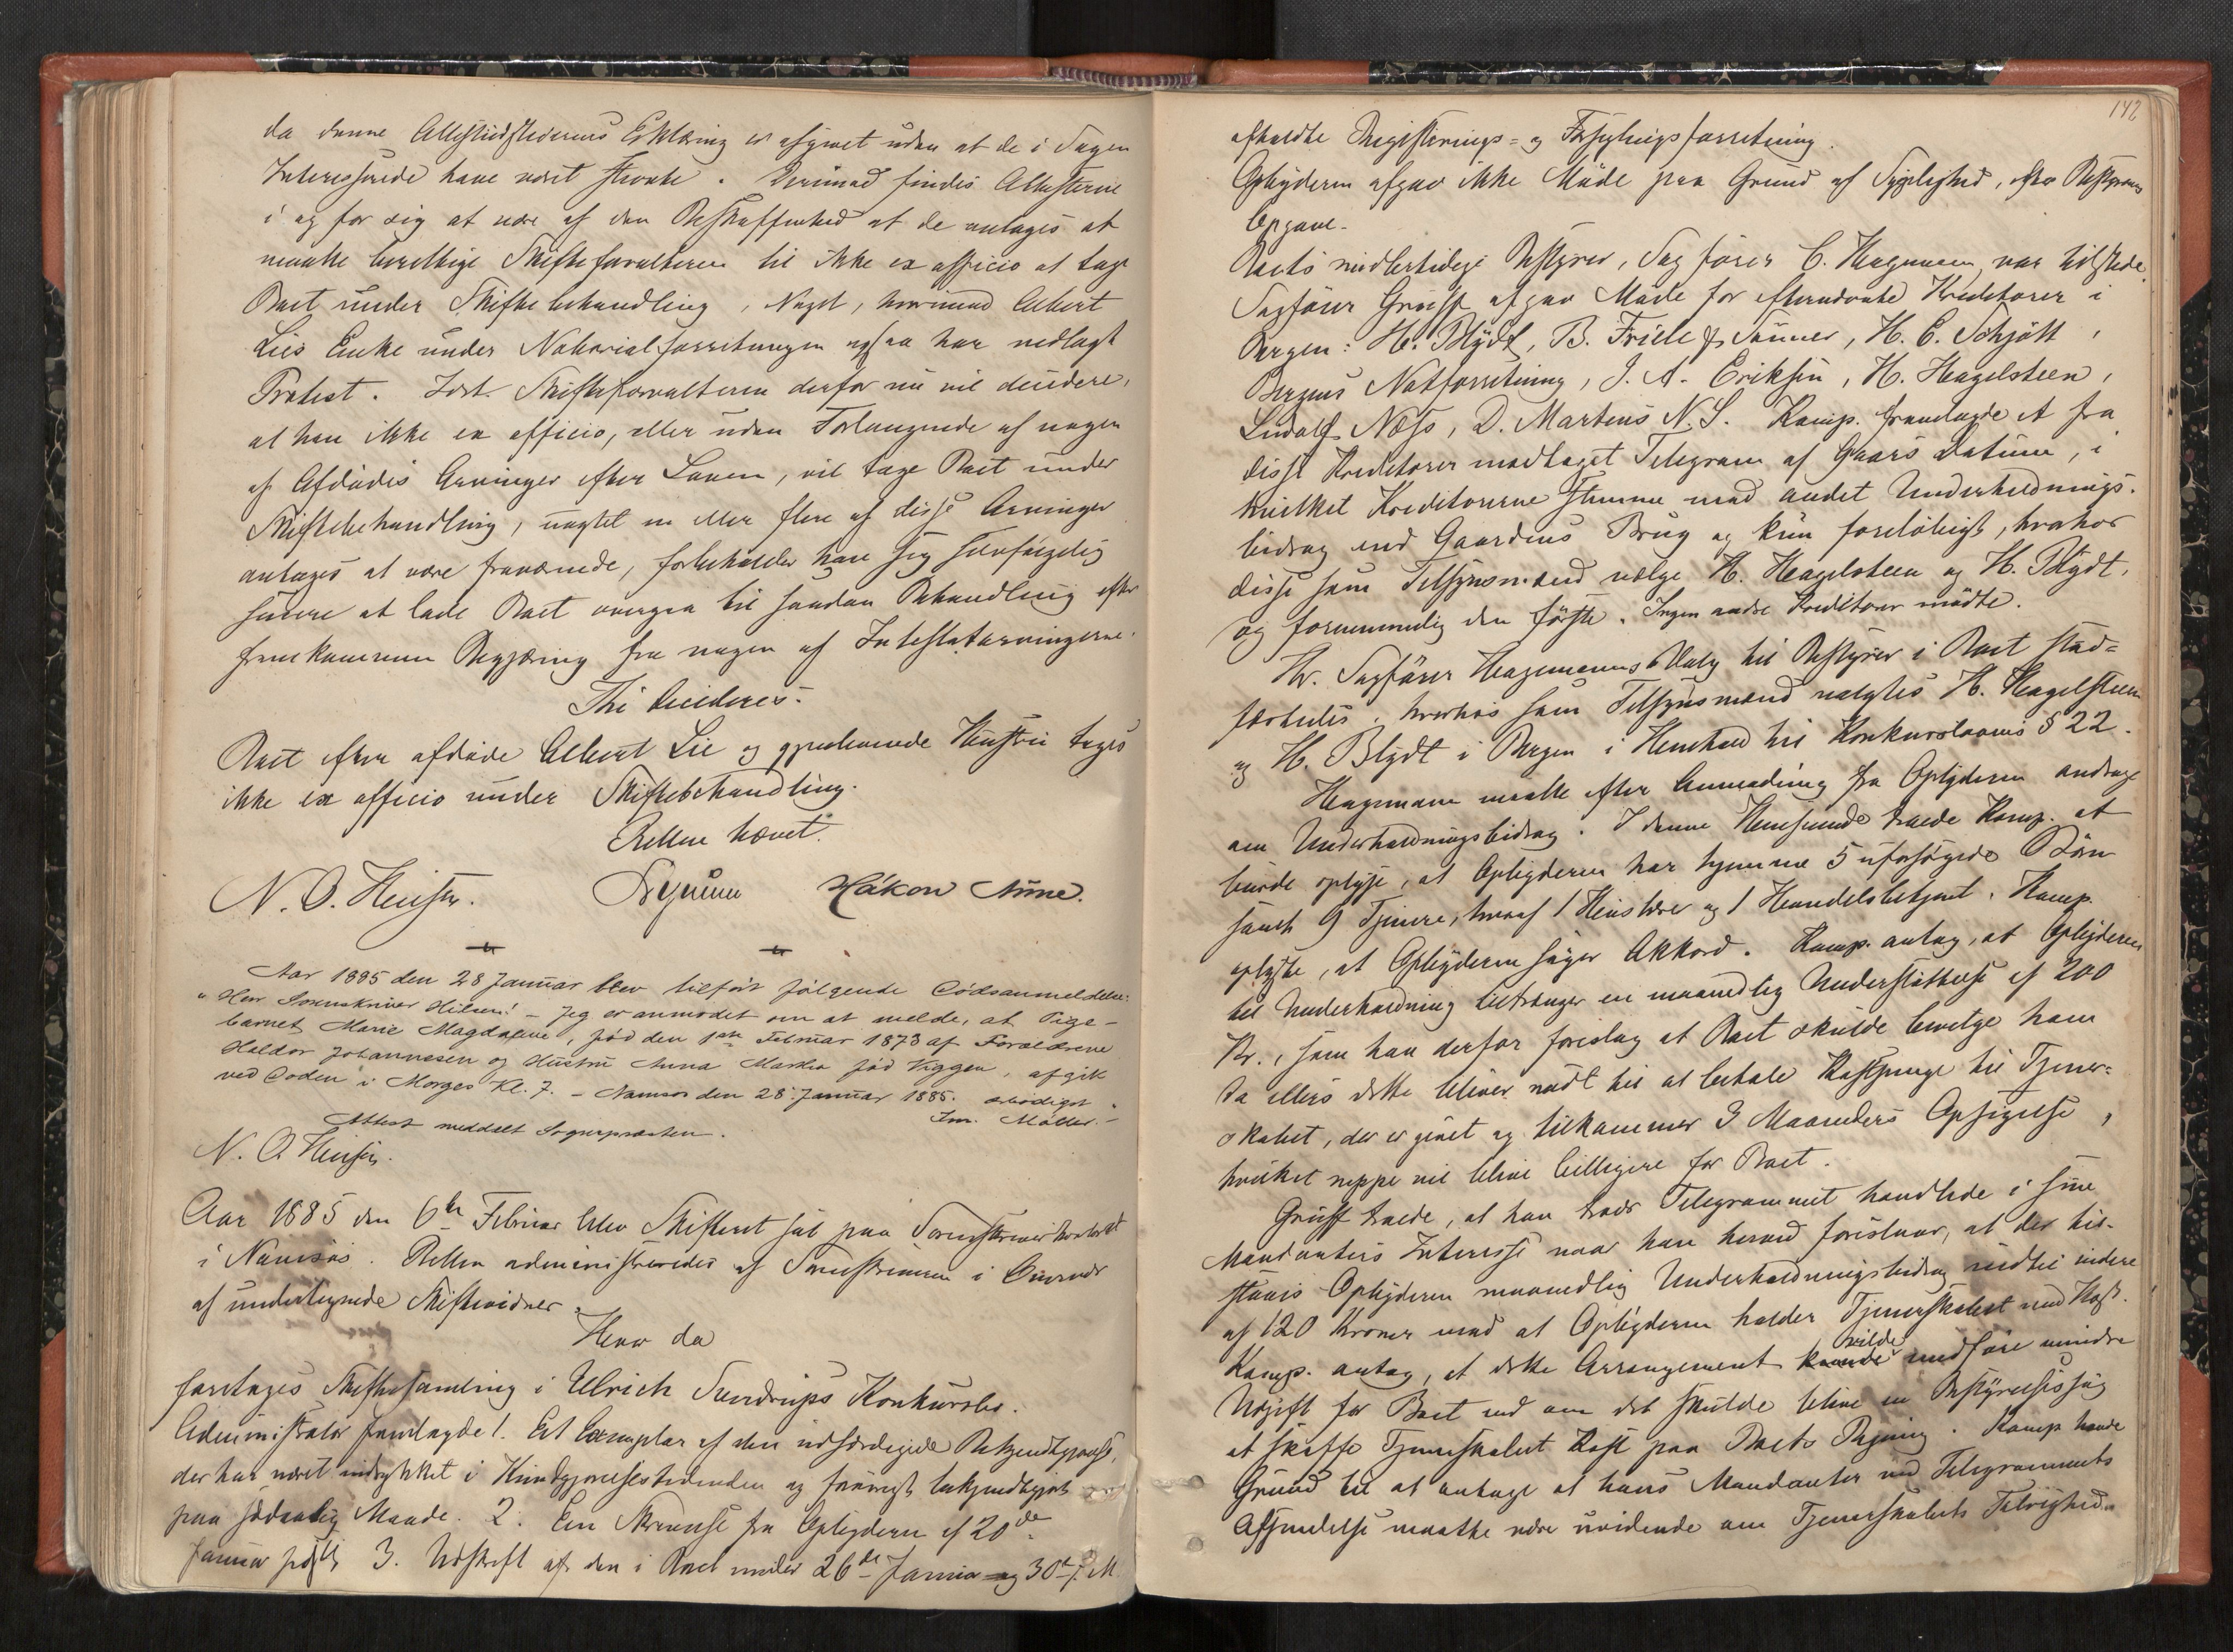 da denne Attestudstederens Erklæring er afgivet uden at de i Sagen
Interesserede have været stevnte. Derimod findes Attesterne
i og for sig at være af den Beskaffenhed at de antages at
maatte berettige Skifteforvalteren til ikke ex officio at tage
Boet under Skiftebehandling, Noget, hvorimod Albert
Lies Enke under Notarialforretningen ogsaa har nedlagt
Protest. Idet Skifteforvalteren derfor nu vil decidere,
at han ikke ex officio, eller uden Forlangende af nogen
af Afdødes Arvinger efter Loven, vil tage Boet under
Skiftebehandling, uagtet en eller flere af disse Arvinger
antages at være fraværende, forbeholder han sig selvfølgelig
senere at lade Boet overgaa til saadan Behandling efter
fremkommen Begjæring fra nogen af Intestatarvingerne.
Thi decideres:
Boet efter afdøde Albert Lie og gjenlevende Hustru tages
ikke ex officio under Skiftebehandling.
Retten hævet.
N. O. Hilsen. Håkon Aune.
Aar 1885 den 28 Januar blev tilført følgende Dødsanmeldelse:
"Herr Sorenskriver Hilsen! – Jeg er anmodet om at melde, at Pige-
barnet Marie Magdalene, fød den 1ste Februar 1873 af Forældrene
Haldor Johannesen og Hustru Anna Martha fød Viggen, afgik
ved Døden i Morges Kl. 7. – Namsos den 28. Januar 1885. ærbødigst
Im. Møller. –
Attest meddelt Sognepræsten.
N. O. Hilsen.
Aar 1885 den 6te Februar blev Skifteret sat paa Sorenskriverkontoret
i Namsos. Retten administreredes af Sorenskriveren i Overvær
af undertegnede Skiftevidner.
Hvor da
foretoges Skiftesamling i Ulrich Sverdrups Konkursbo.
Administrator fremlagde 1. Et Exemplar af den udfærdigede Bekjendtgjørelse,
der har været indrykket i Kundgjørelsestidenden og forøvrigt bekjendtgjort
paa sædvanlig Maade. 2. En Skrivelse fra Opbyderen af 20de
Januar sidstl. 3. Udskrift af den i Boet under 26de Januar og 30te f. M.
142
afholdte Registrerings- og Forseglingsforretning.
Opbyderen afgav ikke Møde paa Grund af Sygelighed, efter Bestyrerens
Opgave.
Boets midlertidige Bestyrer, Sagfører C. Hagemann var tilstede.
Sagfører Gruff afgav Møde for efternævnte Kreditorer i
Bergen: H. Blydt, B. Friele & Sønner, H. C. Schjøtt,
Bergens Notforretning, J. A. Eriksen, H. Hagelsteen,
Ludolf Næss, D. Martens N. S. Komp. fremlagde et fra
disse Kreditorer modtaget Telegram af Gaars Datum, i
hvilket Kreditorerne stemme mod andet Underholdnings-
bidrag end Gaardens Brug og kun foreløbigt, hvorhos
disse som Tilsynsmænd vælge H. Hagelsteen og H. Blydt,
og fornemmelig den første. Ingen andre Kreditorer mødte.
Hr. Sagfører Hagemanns Valg til Bestyrer i Boet stad-
fæstedes, hvorhos som Tilsynsmænd valgtes H. Hagelsteen
og H. Blydt i Bergen i Henhold til Konkurslovens § 22.
Hagemann maatte efter Anmodning fra Opbyderen andrage
om Underholdningsbidrag. I denne Henseende troede Komp. at
burde oplyse, at Opbyderen har hjemme 5 uforsørgede Børn
samt 9 Tjenere, hvoraf 1 Huslærer og 1 Handelsbetjent. Komp.
oplyste, at Opbyderen søger Akkord. Komp. antog, at Opbyderen
til Underholdning tiltrænger en maanedlig Understøttelse af 200
Kr., som han derfor foreslog at Boet skulde bevilge ham
da ellers dette bliver nødt til at betale Kostpenge til Tjener-
skabet, der er givet og tilkommer 3 Maaneders Opsigelse,
hvilket neppe vil blive billigere for Boet.
Gruff troede, at han trods Telegrammet handlede i sine
Mandanters Interesse naar han herved foreslaar, at der til-
staaes Opbyderen maanedlig Underholdningsbidrag indtil videre
af 120 Kroner mod at Opbyderen holder Tjenerskabet med Kost.
Komp. antog, at dette Arrangement vilde medføre mindre
Udgift for Boet end om det skulde blive en Bestyrelsessag
at skaffe Tjenerskabet Kost paa Boets Regning. Komp. havde
Grund til at antage at hans Mandanter ved Telegrammets
Afsendelse maatte være uvidende om Tjenerskabets